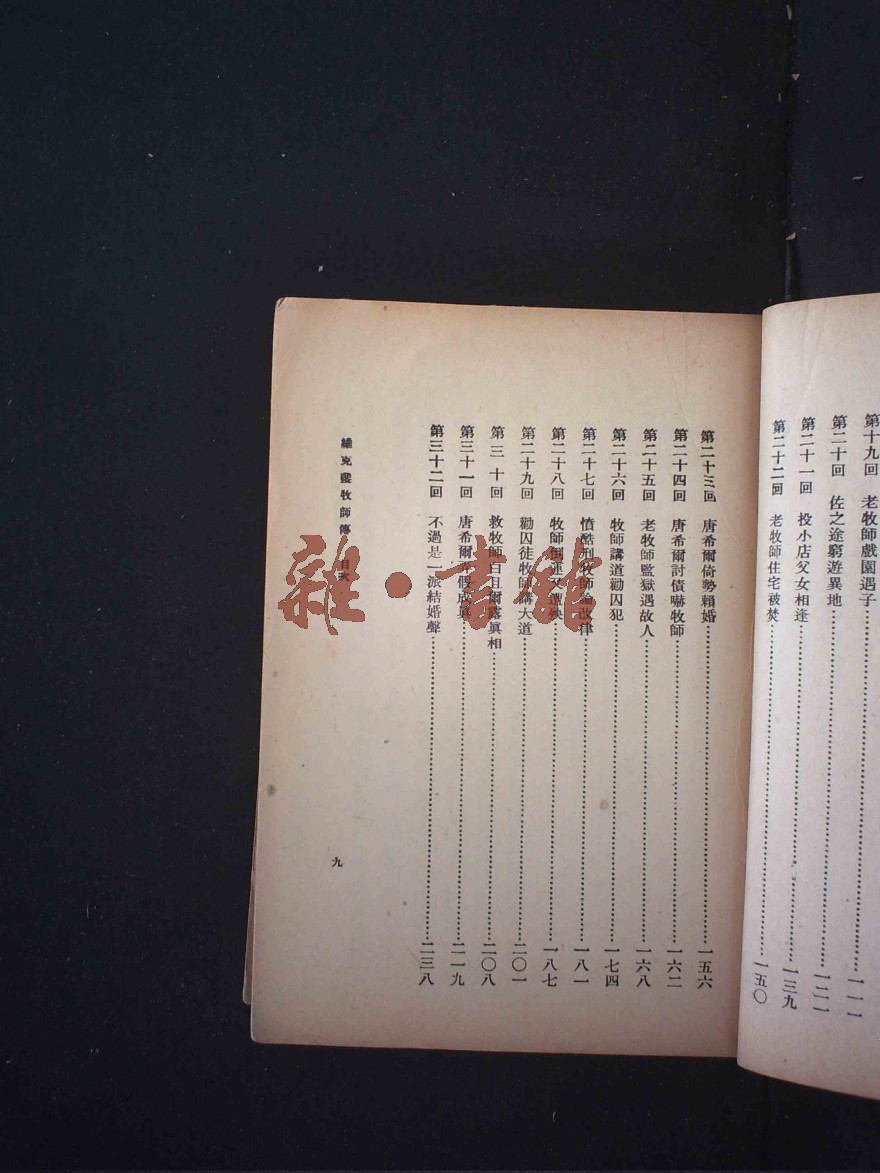 第十九回　老牧師戲園遇子……………一一一
第二十回　佐之途窮遊異地……………一二一
第二十一回　投小店父女相逢……………一三九
第二十二回　老牧師住宅被焚……………一五〇
第二十三回　唐希爾倚勢賴婚……………一五六
第二十四回　唐希爾討債嚇牧師……………一六二
第二十五回　老牧師監獄遇故人……………一六八
第二十六回　牧師講道勸囚犯……………一七四
第二十七回　憤酷刑牧師論改律……………一八一
第二十八回　牧師倒運又遭殃……………一八七
第二十九回　勸囚徒牧師講大道……………二〇一
第三十回　救牧師白且爾露眞相……………二〇八
第三十一回　唐希爾弄假成眞……………二一九
第三十二回　不過是一派結婚聲……………二三八
維克斐牧師傳　目次
九
雜·書館